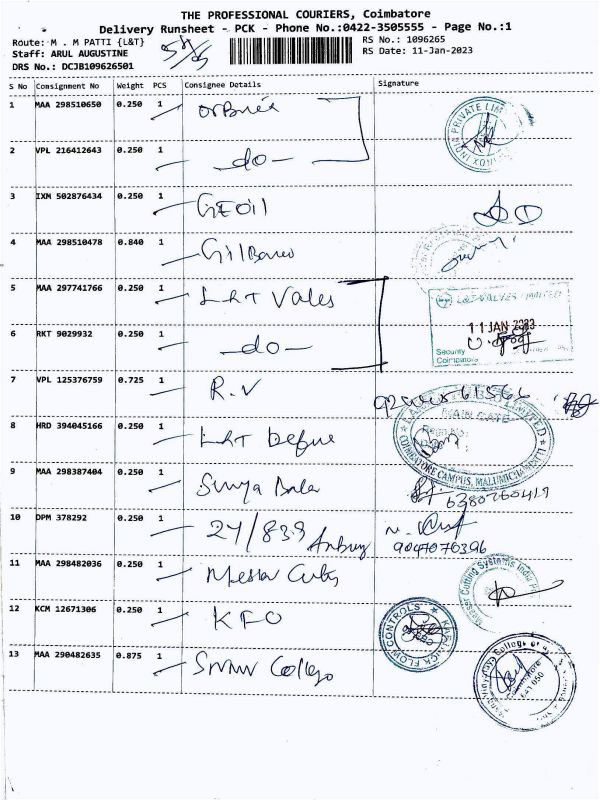 THE PROFESSIONAL COURIERS, Coimbatore
Delivery Runsheet - PCK - Phone No.:0422-3505555 - Page No.:1
Route: M . M PATTI {L&T}
RS No.: 1096265
Staff: ARUL AUGUSTINE
RS Date: 11-Jan-2023
DRS No.: DCJB109626501
S No Consignment No Weight PCS Consignee Details Signature
1 MAA 298510650 0.250 1
2 VPL 216412643 0.250 1 -do-
3 IXM 502876434 0.250 1 GEOil
4 MAA 298510478 0.840 1 Gilbarco
5 MAA 297741766 0.250 1 L&T Vales
L&T VALVES LIMITED
11 JAN 2023
6 RKT 9029932 0.250 1 -do-
Security
Coimbatore
7 VPL 125376759 0.725 1 R.V
MAIN GATE
8 HRD 394045166 0.250 1 L&T Defence
COIMBATORE CAMPUS, MALUMICHAMPATTI
9 MAA 298387404 0.250 1 Surya Bala
6380760419
10 DPM 378292 0.250 1 24/839
11 MAA 298482036 0.250 1 Messer Cuts
Messer Cutting Systems India
12 KCM 12671306 0.250 1 KFO
FLOW CONTROLS
13 MAA 290482635 0.875 1 College
641 050